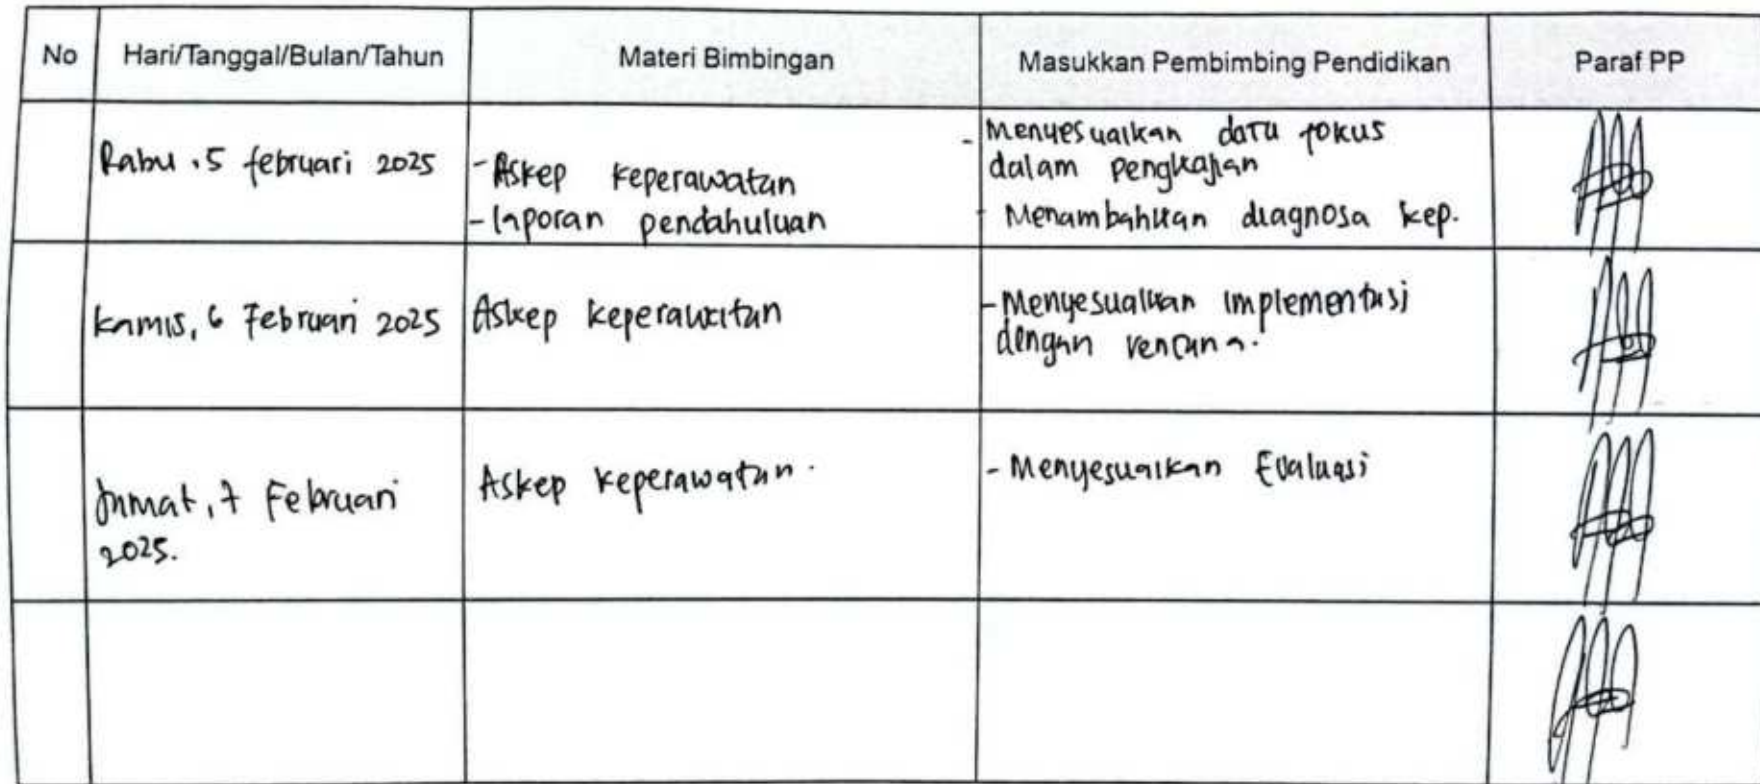 No Hari/Tanggal/Bulan/Tahun Materi Bimbingan Masukkan Pembimbing Pendidikan Paraf PP
Rabu, 5 februari 2025
- Askep keperawatan
- laporan pendahuluan
- Menyesuaikan data fokus
dalam pengkajian
- Menambahkan diagnosa kep.
Kamis, 6 Februari 2025
Askep keperawatan
- Menyesuaikan implementasi
dengan rencana.
Jumat, 7 Februari
2025.
Askep keperawatan.
- Menyesuaikan Evaluasi